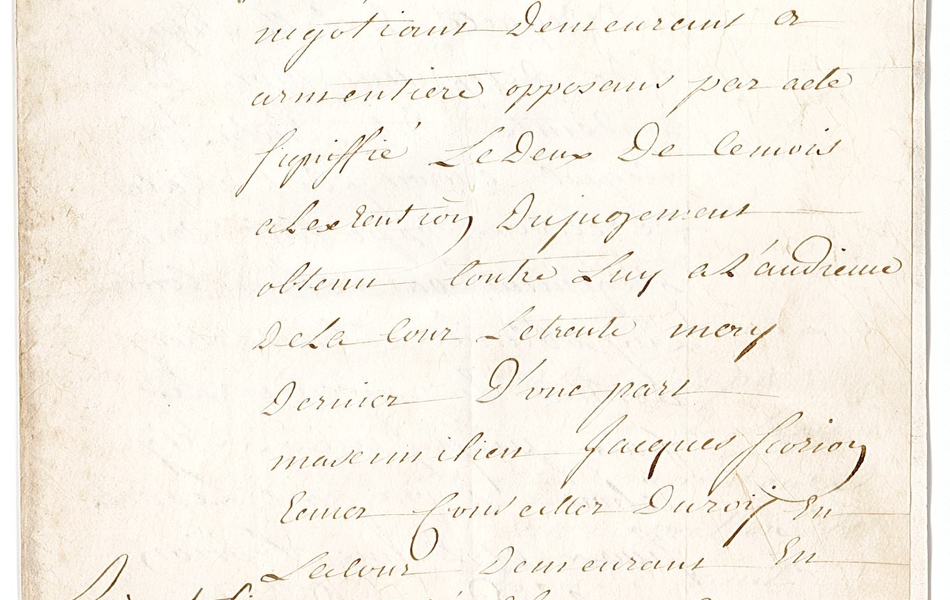 negotiant Demeurant a
armentiere opposant par acte
signiffié Le Deux De Ce mois
a Lexecution Du jugement
obtenu Contre Luy a L'audience
De La Cour Le trente mey
Dernier D'une part
maxcimilien Jacques Scorion
Ecuier Conseiller Du roij En
La Cour Demeurant En